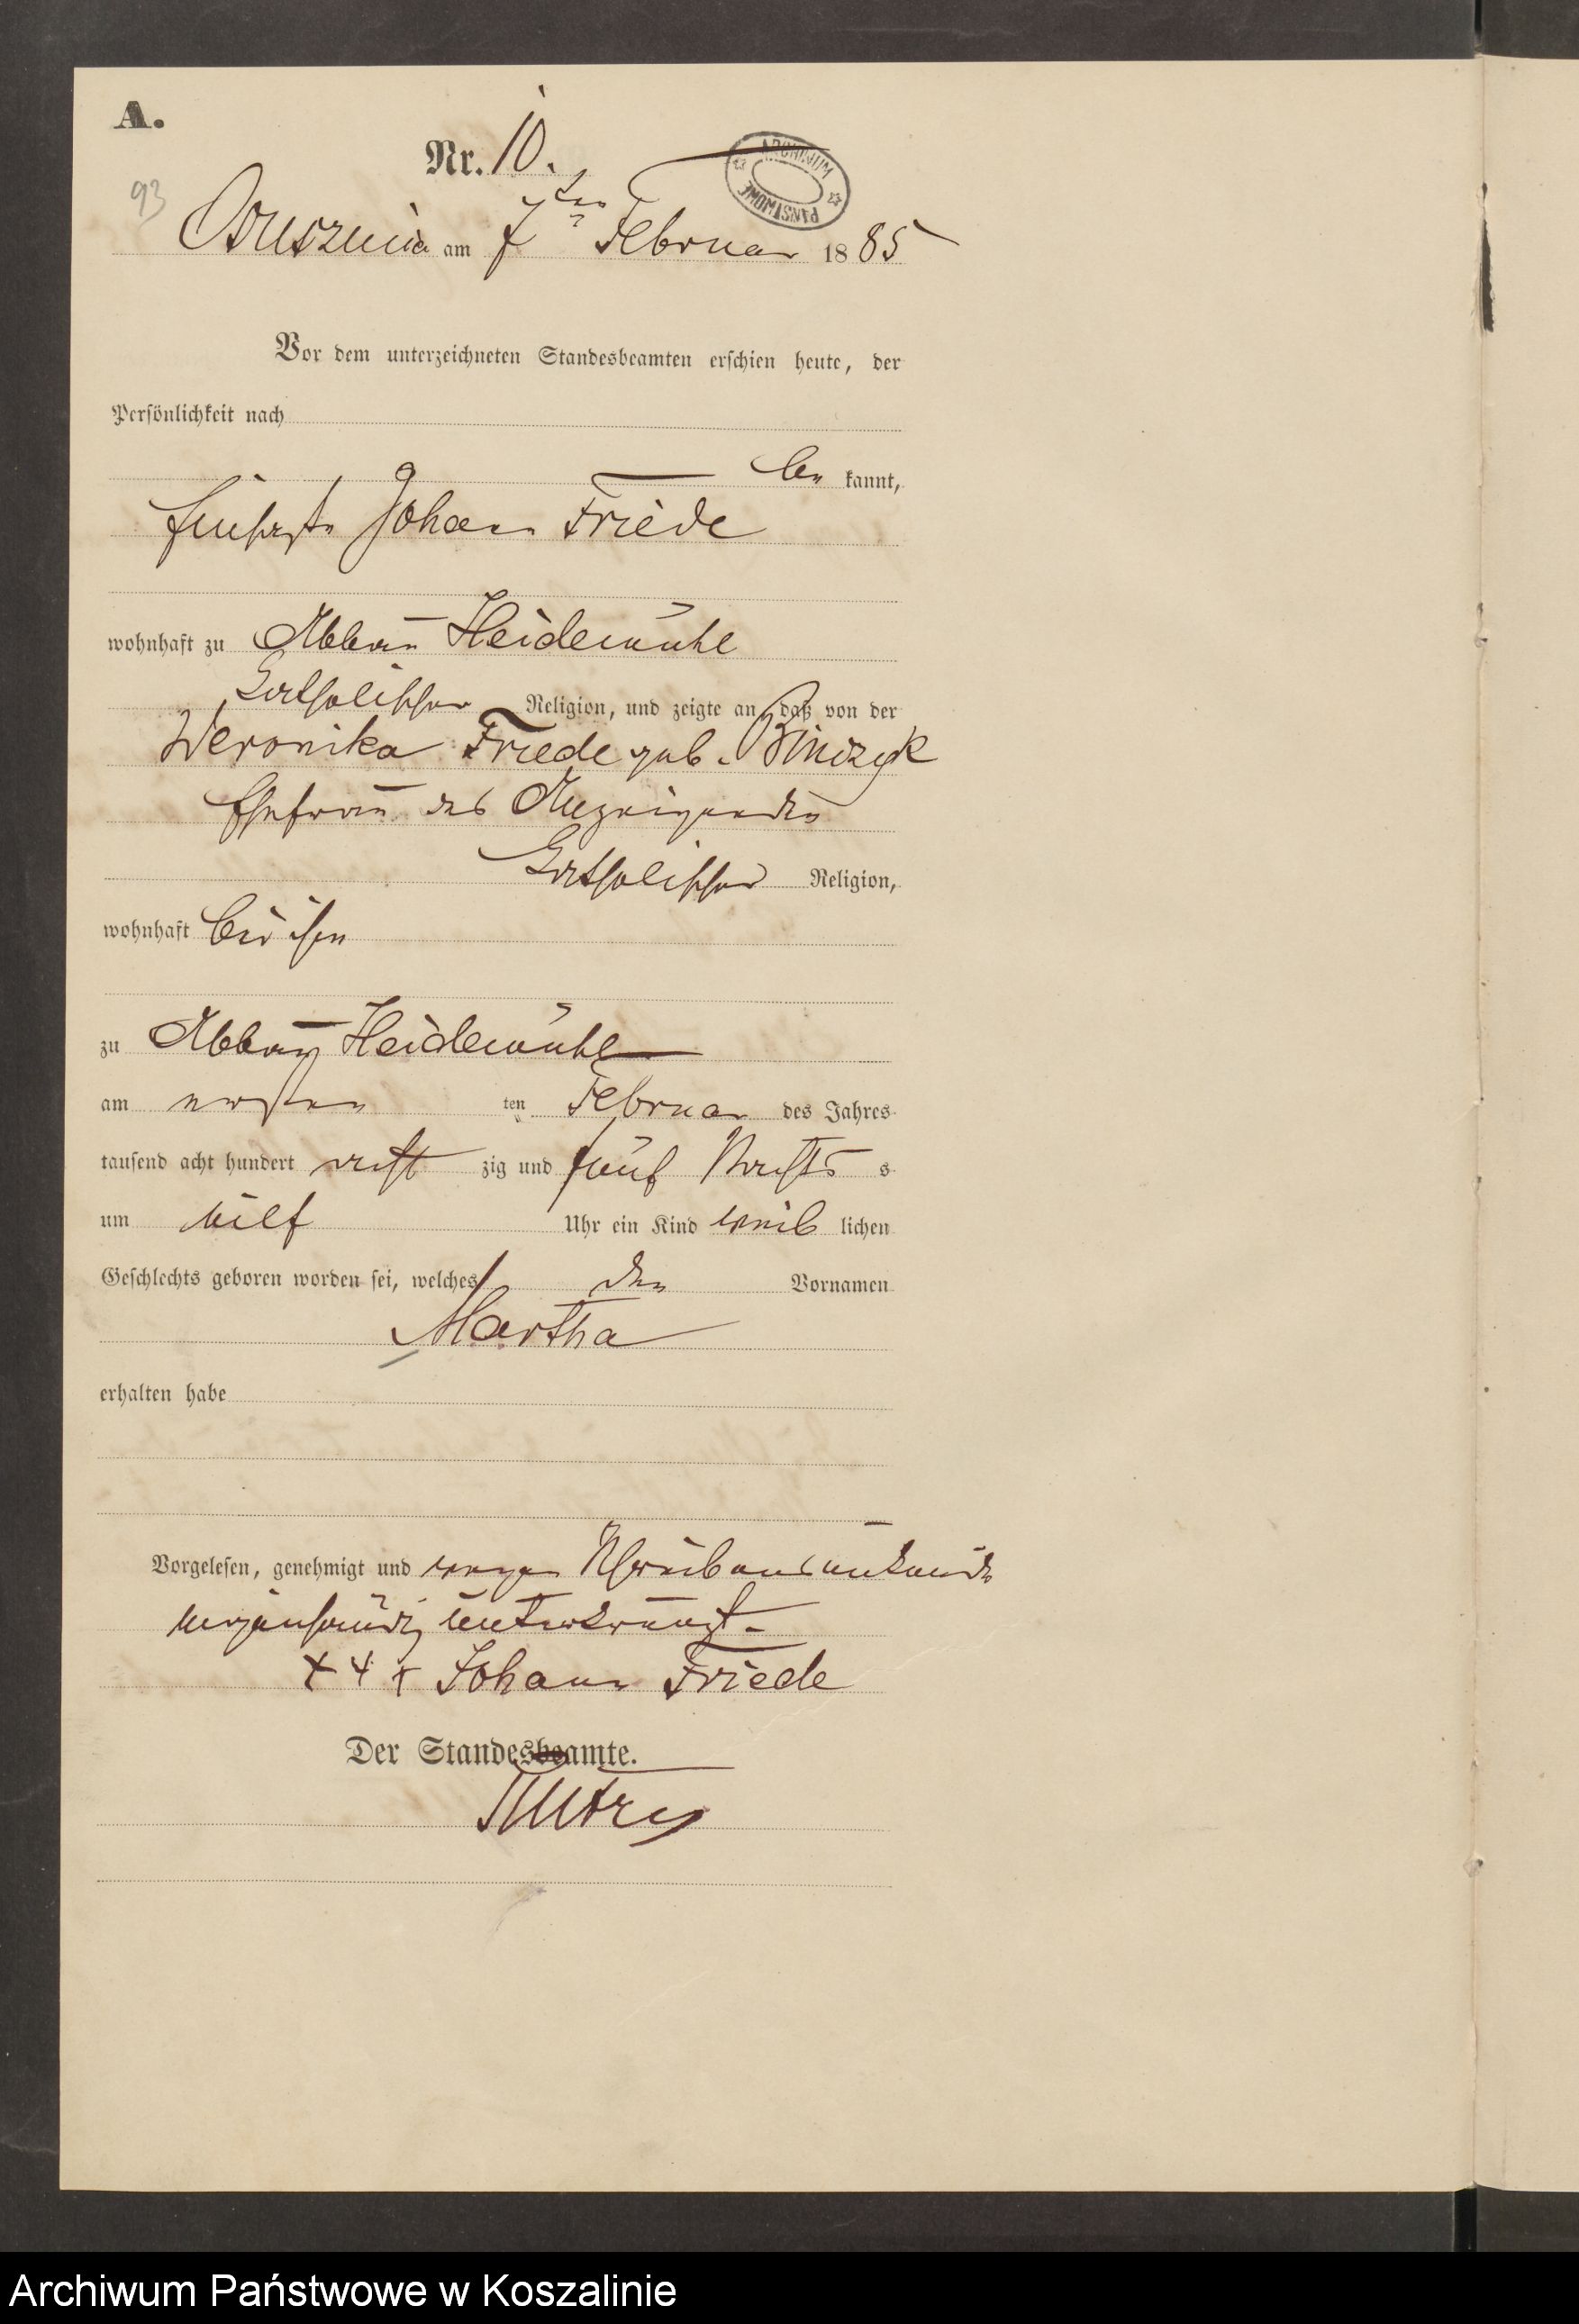 A.
Nr. 10.
93
ARCHIWUM PAŃSTWOWE
Osusznica am 7ten Februar 1885
Vor dem unterzeichneten Standesbeamten erschien heute, der
Persönlichkeit nach
be kannt,
Johann Friede
wohnhaft zu Abbau Heidemühl
katholischer Religion, und zeigte an, daß von der
Weronika Friede geb. Binczyk
Ehefrau des Anzeigenden
katholischer Religion,
wohnhaft bei ihm
zu Abbau Heidemühl
am ersten ten Februar des Jahres
tausend acht hundert acht zig und fünf Nachts
um Uhr ein Kind weib lichen
Geschlechts geboren worden sei, welches den Vornamen
Martha
erhalten habe
Vorgelesen, genehmigt und wegen Schreibensunkunde
eigenhändig unterkreuzt.
+ + + Johann Friede
Der Standesbeamte.
Archiwum Państwowe w Koszalinie